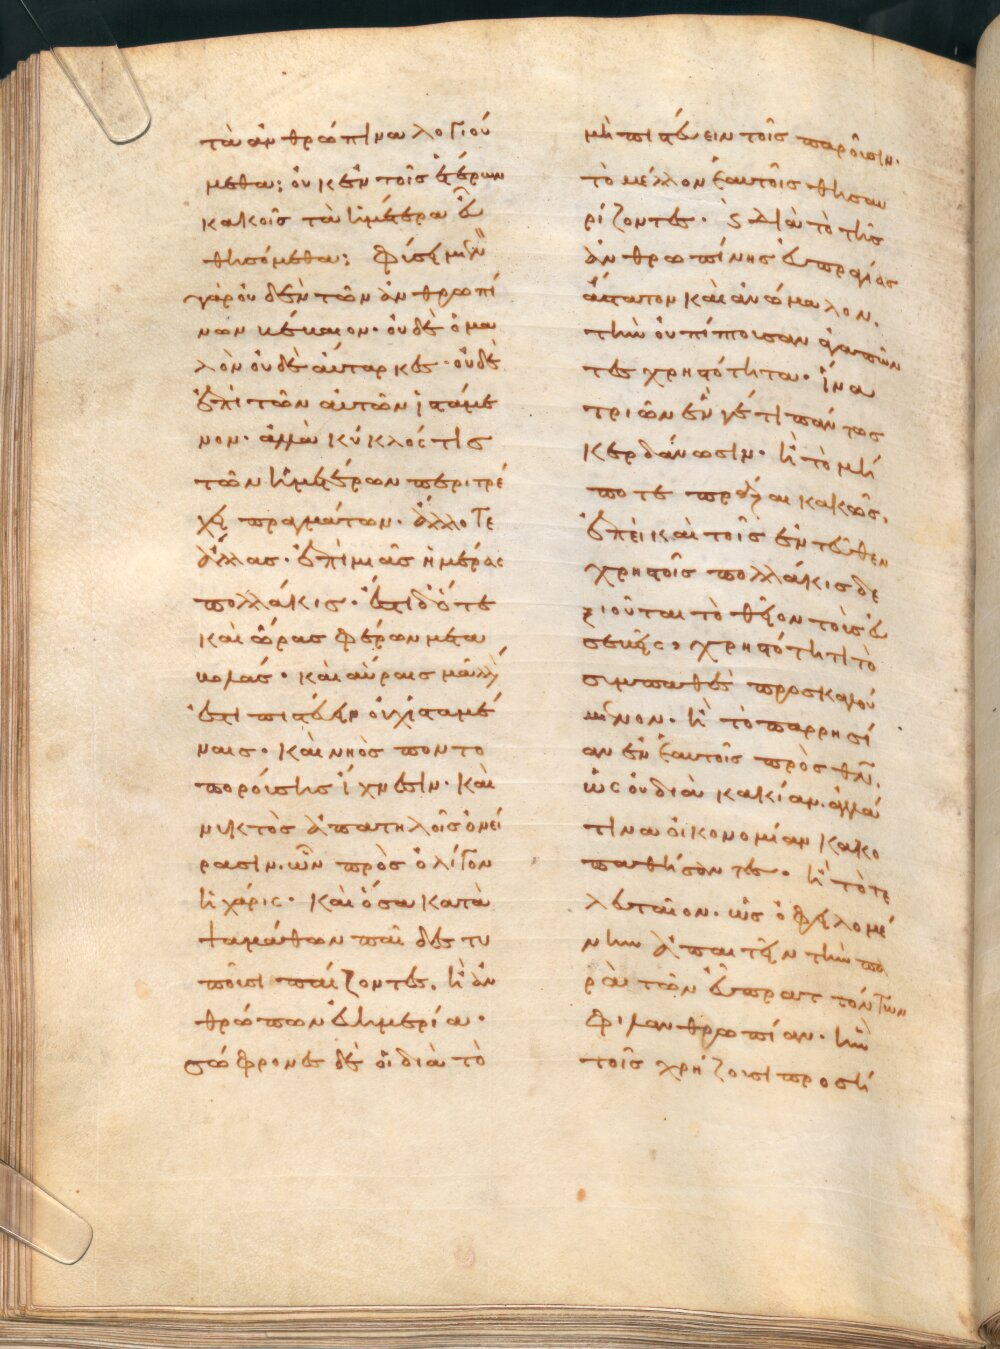 τὰ ἀνθρώπινα λογιού
μεθα; οὐκ ἐν τοῖς ἑτέρων
κακοῖς τὰ ἡμέτερα εὖ
θησόμεθα; φύσει μὲν
γὰρ οὐδὲν τῶν ἀνθρωπί
νων βέβαιον· οὐδὲ ὁμα
λὸν οὐδὲ αὔταρκες· οὐδὲ
ἐπὶ τῶν αὐτῶν ἱστάμε
νον· ἀλλὰ κύκλός τις
τῶν ἡμετέρων περιτρέ
χει πραγμάτων· ἄλλοτε
ἄλλας· ἐπὶ μιᾶς ἡμέρας
πολλάκις· ἔστι δ' ὅτε
καὶ ὥρας φέρων μετα
βολάς· καὶ αὔραις μᾶλλον
ἔστι πιστεύειν οὐχ ἱσταμέ
ναις· καὶ νηὸς ποντο
πορούσης ἴχνεσιν· καὶ
νυκτὸς ἀπατηλοῖς ὀνεί
ρασιν. ὧν πρὸς ὀλίγον
ἡ χάρις· καὶ ὅσα κατὰ
ψαμάθων παῖδες τυ
ποῦσι παίζοντες. ἢ ἀν
θρώπων εὐημερία·
σώφρονες δὲ οἱ διὰ τὸ
μὴ πιστεύειν τοῖς παροῦσιν.
τὸ μέλλον ἑαυτοῖς θησαυ
ρίζοντες· ϛ διὰ τὸ τῆς
ἀνθρωπίνης εὐπραγίας
ἄστατον καὶ ἀνώμαλον.
τὴν οὐ πίπτουσαν ἀγαπῶν
τες χρηστότητα· ἵνα
τριῶν ἕν γέ τι πάντως
κερδάνωσιν· ἢ τὸ μή
ποτε πρᾶξαι κακῶς.
ἐπεὶ καὶ τοῖς ἐντεῦθεν
χρηστοῖς πολλάκις δε
ξιοῦται τὸ θεῖον τοὺς εὐ
σεβεῖς· χρηστότητι τὸ
συμπαθὲς προσκαλού
μενον· ἢ τὸ παρρησί
αν ἐν ἑαυτοῖς πρὸς θν̄.
ὡς οὐ διὰ κακίαν. ἀλλά
τινα οἰκονομίαν κακο
παθήσοντες· ἢ τὸ τε
λευταῖον. ὡς ὀφειλομέ
νην ἀπαιτεῖν τὴν πα
ρὰ τῶν εὖ πραττόντων
φιλανθρωπίαν· ἣν
τοῖς χρῄζουσι προσή